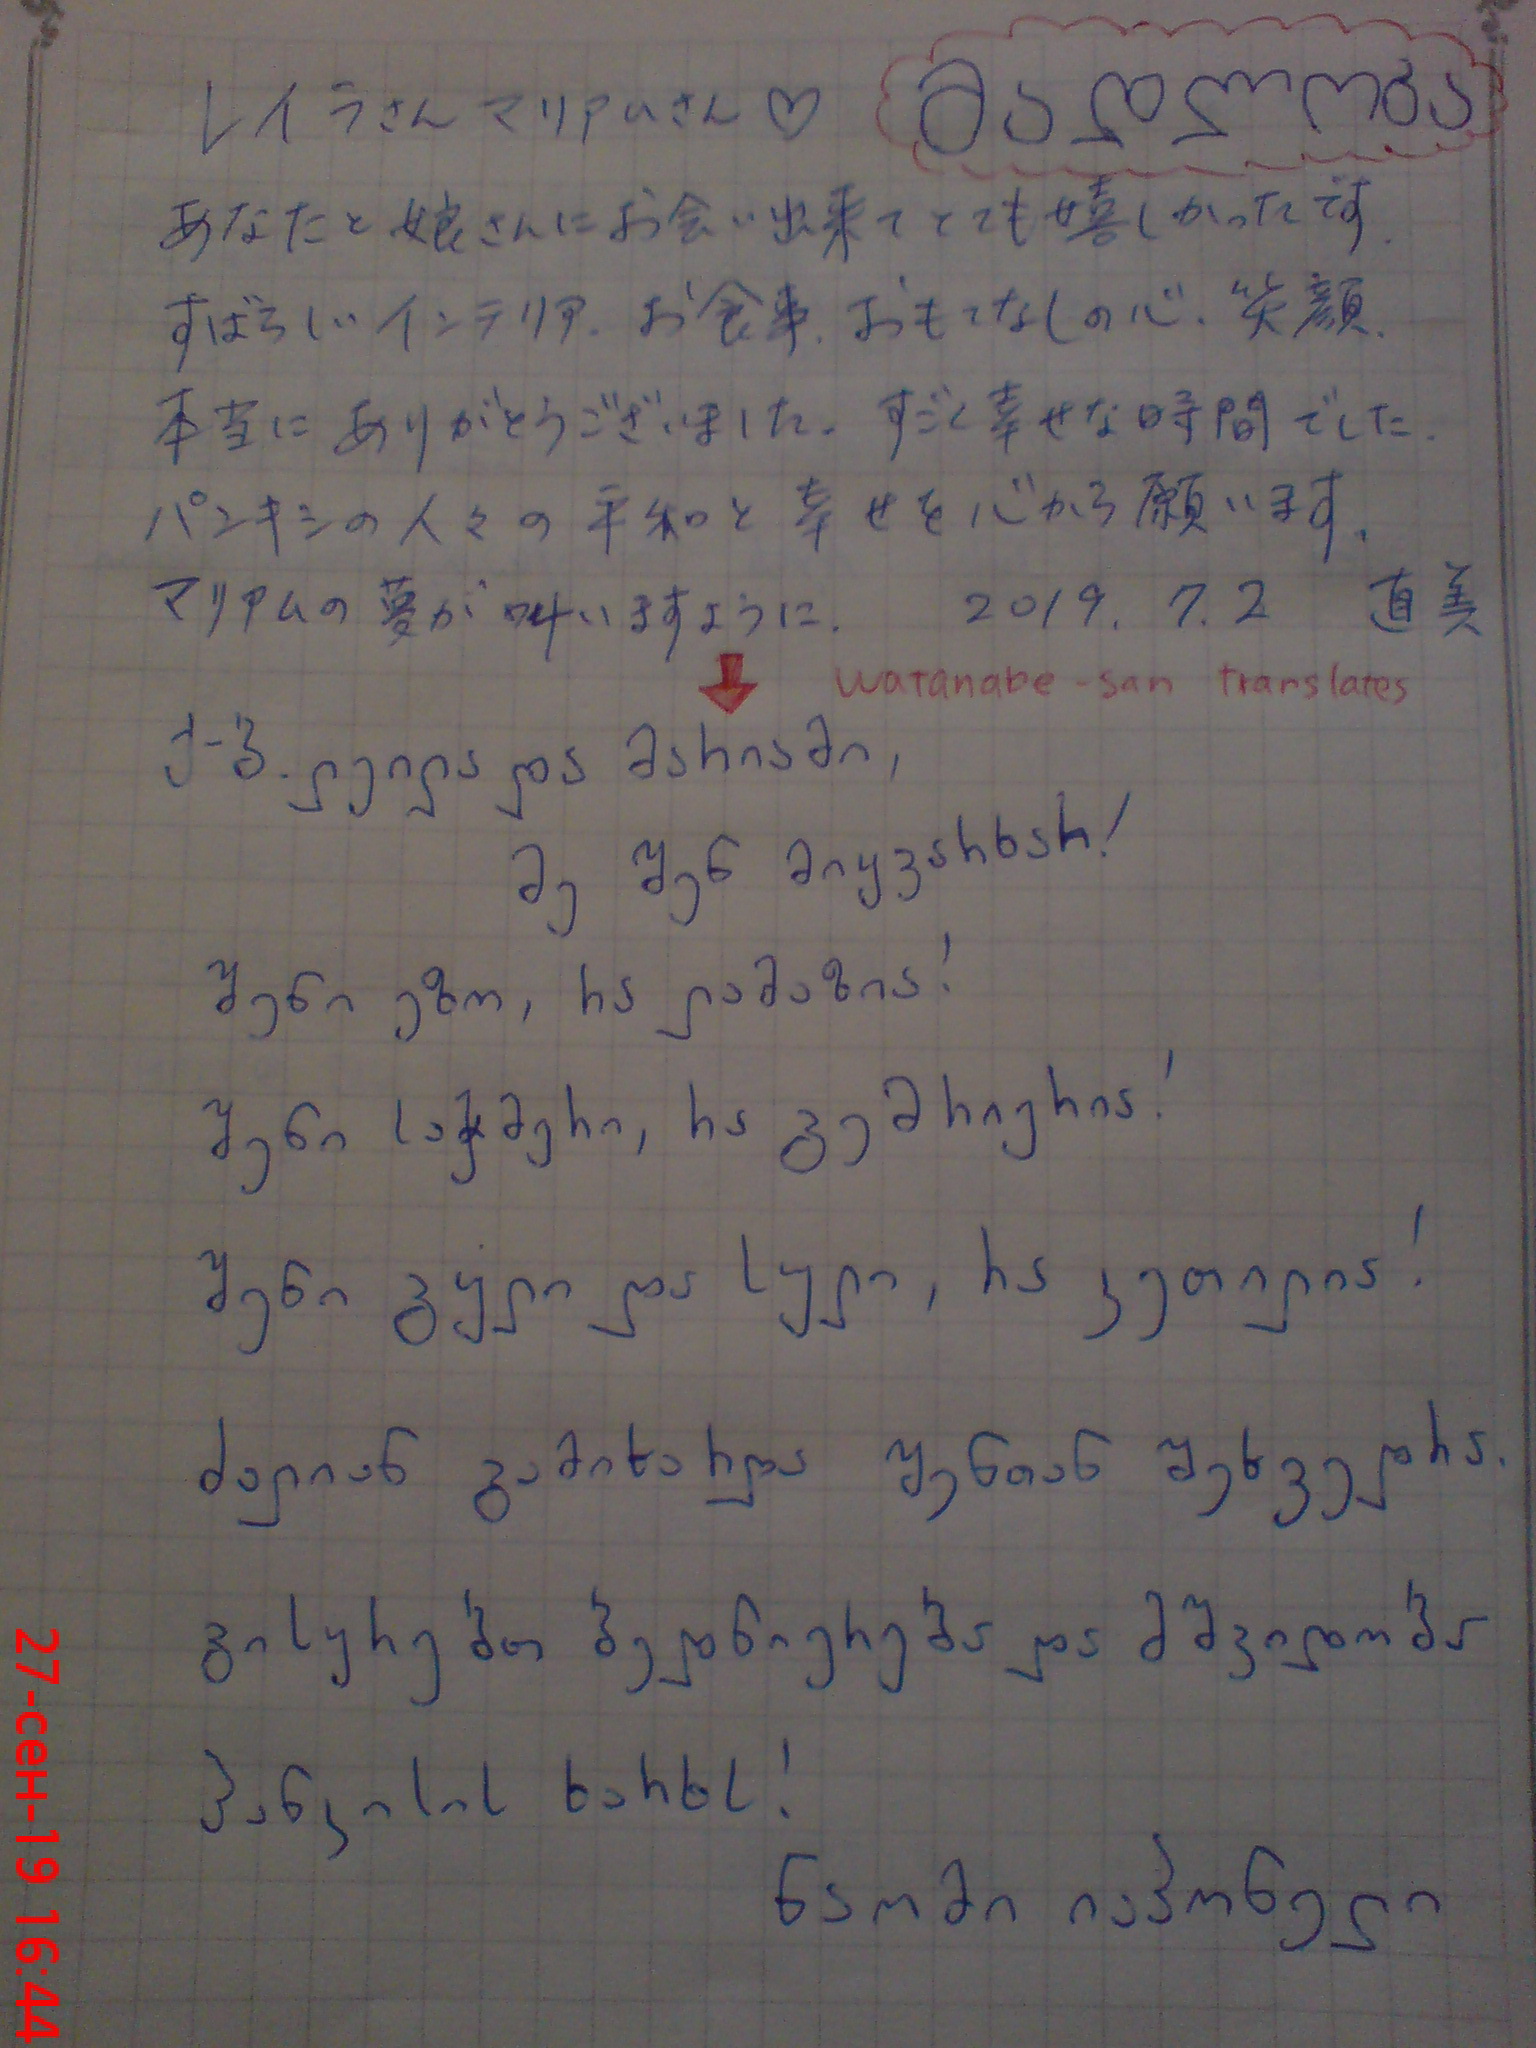 レイラさん マリアムさん♡ მადლობა
あなたと娘さんにお会い出来てとても嬉しかったです.
すばらしいインテリア. お食事. おもてなしの心. 笑顔.
本当にありがとうございました. すごく幸せな時間でした.
パンキシの人々の平和と幸せを心から願います.
マリアムの夢が叶いますように. 2019. 7. 2 直美
watanabe-san translates
ქ-ბ. ლეილა და მარიამი,
მე შენ მიყვარხარ!
შენი ეზო, რა ლამაზია!
შენი საჭმერი, რა გემრიერია!
შენი გული და სული, რა კეთილია!
ძალიან გამიხარდა შენთან შეხვედრა.
გისურებთ ბედნიერება და მშვიდობა
პანკისის ხარხს!
ნაომი იაპონელი
27-сен-19 16:44